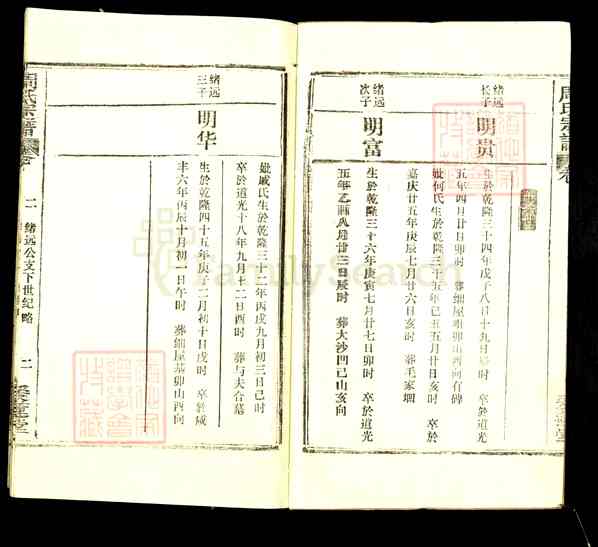 周氏宗譜
绪远
长子
明贵
生於乾隆三十四年戊子八月十九日辰时 卒於道光
五年四月廿日卯时 葬细屋咀卯山酉向有碑
妣何氏生於乾隆三十五年己丑五月廿日亥时 卒於
嘉庆廿五年庚辰七月廿六日亥时 葬毛家垇
绪远
次子
明富
生於乾隆三十六年庚寅七月廿七日卯时 卒於道光
五年乙酉八月廿三日辰时 葬大沙凹己山亥向
妣戚氏生於乾隆三十二年丙戌九月初三日己时
卒於道光十八年九月十二日酉时 葬与夫合墓
绪远
三子
明华
生於乾隆四十五年庚子二月初十日戌时 卒於咸
丰六年丙辰十月初一日午时 葬细屋基卯山酉向
周氏宗譜
二 绪远公支下世纪略 二
FamilySearch